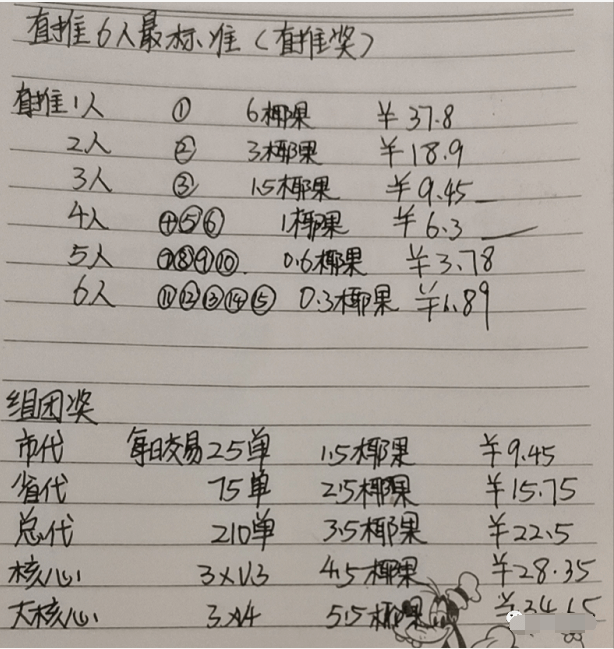 直推6人最标准（直推奖）
直推1人 ① 6椰果 ¥37.8
2人 ② 3椰果 ¥18.9
3人 ③ 1.5椰果 ¥9.45
4人 ④⑤⑥ 1椰果 ¥6.3
5人 ⑦⑧⑨⑩ 0.6椰果 ¥3.78
6人 ⑪⑫⑬⑭⑮ 0.3椰果 ¥1.89
组团奖
市代 每日交易25单 1.5椰果 ¥9.45
省代 75单 2.5椰果 ¥15.75
总代 210单 3.5椰果 ¥22.5
核心 3×V3 4.5椰果 ¥28.35
大核心 3×V4 5.5椰果